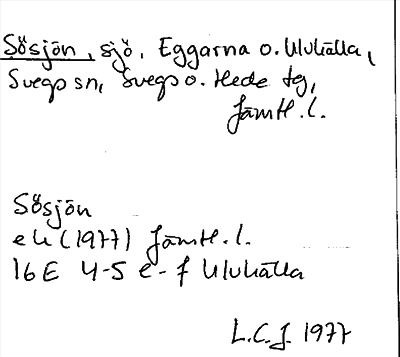 Sösjön, sjö, Eggarna o. Ulvkälla,
Svegs sn, Svegs o. Hede tg,
Jämtl. l.
Sösjön
ek (1977) Jämtl. l.
16 E 4-5 e-f Ulvkälla
L.C.J. 1977